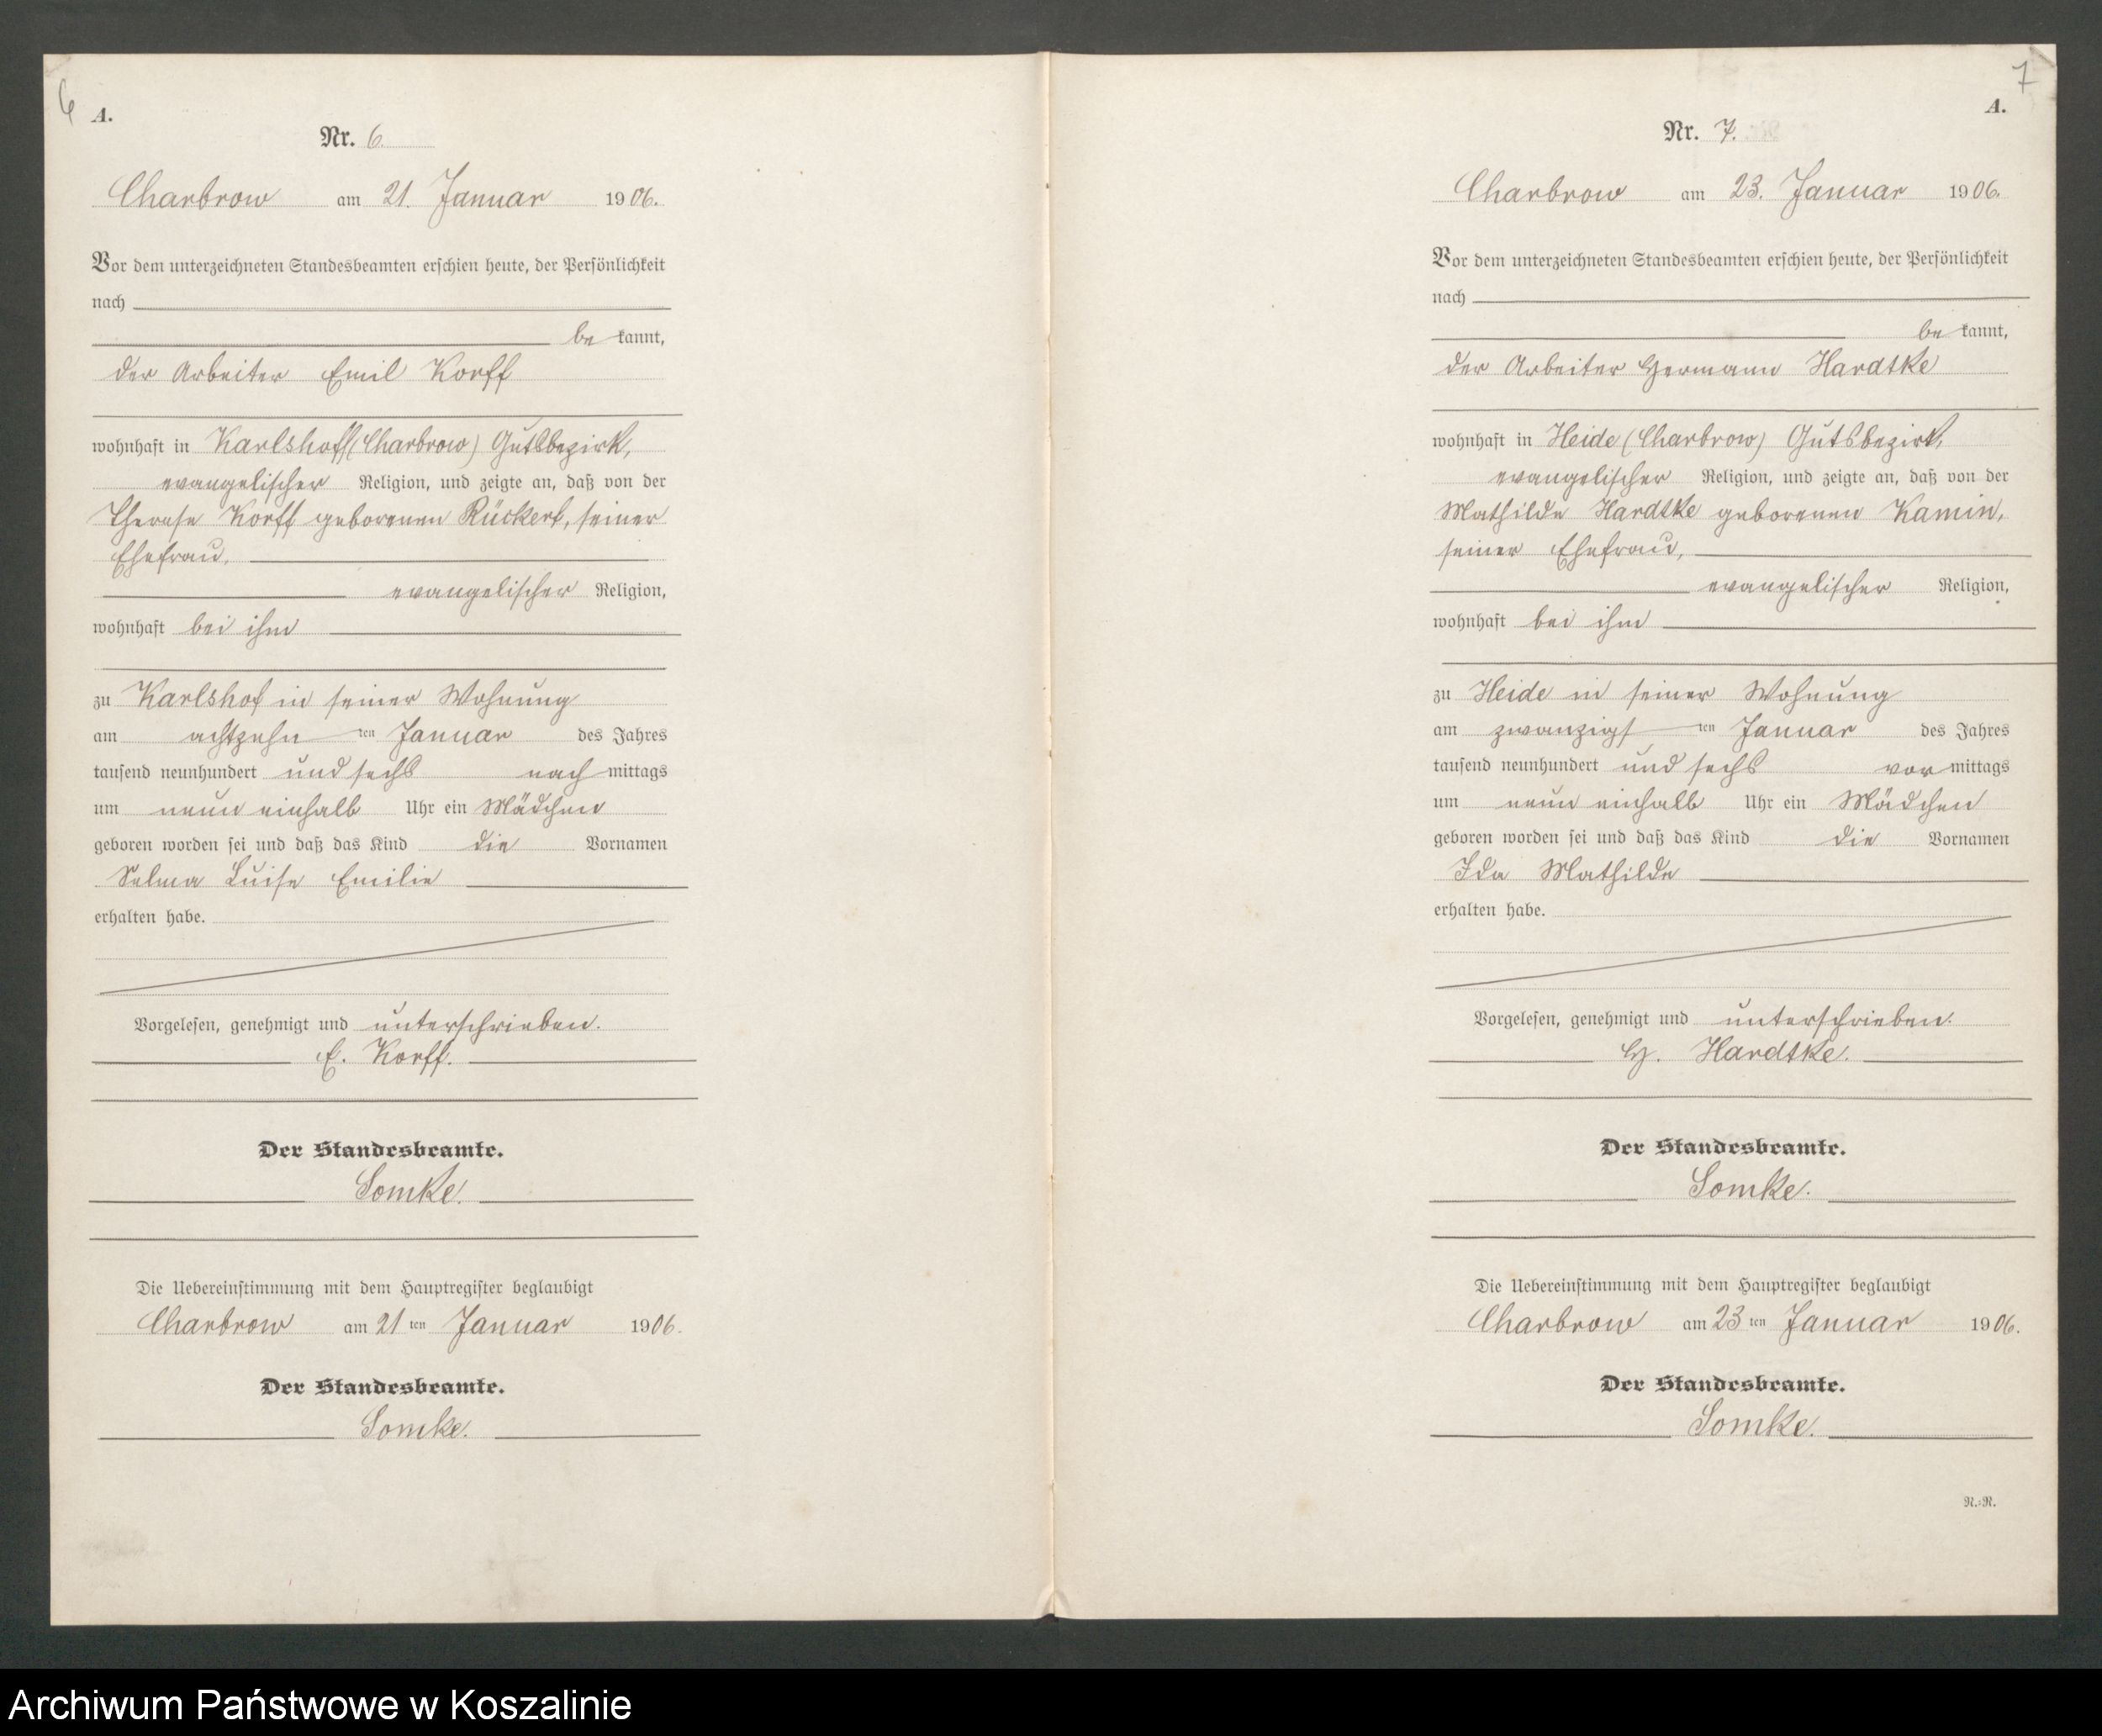 6
A.
Nr. 6.
Charbrow am 21. Januar 1906.
Vor dem unterzeichneten Standesbeamten erschien heute, der Persönlichkeit
nach
be kannt,
der Arbeiter Emil Korff
wohnhaft in Karlshoff (Charbrow) Gutsbezirk,
evangelischer Religion, und zeigte an, daß von der
Therese Korff geborenen Rückert, seiner
Ehefrau,
evangelischer Religion,
wohnhaft bei ihm
zu Karlshof in seiner Wohnung
am achtzehn ten Januar des Jahres
tausend neunhundert und sechs nach mittags
um neun einhalb Uhr ein Mädchen
geboren worden sei und daß das Kind die Vornamen
Selma Luise Emilie
erhalten habe.
Vorgelesen, genehmigt und unterschrieben.
E. Korff.
Der Standesbeamte.
Somke.
Die Uebereinstimmung mit dem Hauptregister beglaubigt
Charbrow am 21 ten Januar 1906.
Der Standesbeamte.
Somke.
7
A.
Nr. 7.
Charbrow am 23. Januar 1906.
Vor dem unterzeichneten Standesbeamten erschien heute, der Persönlichkeit
nach
be kannt,
der Arbeiter Hermann Hardtke
wohnhaft in Heide (Charbrow) Gutsbezirk,
evangelischer Religion, und zeigte an, daß von der
Mathilde Hardtke geborenen Kamin,
seiner Ehefrau,
evangelischer Religion,
wohnhaft bei ihm
zu Heide in seiner Wohnung
am zwanzigst ten Januar des Jahres
tausend neunhundert und sechs vor mittags
um neun einhalb Uhr ein Mädchen
geboren worden sei und daß das Kind die Vornamen
Ida Mathilde
erhalten habe.
Vorgelesen, genehmigt und unterschrieben.
H. Hardtke.
Der Standesbeamte.
Somke.
Die Uebereinstimmung mit dem Hauptregister beglaubigt
Charbrow am 23 ten Januar 1906.
Der Standesbeamte.
Somke.
N.:N.
Archiwum Państwowe w Koszalinie